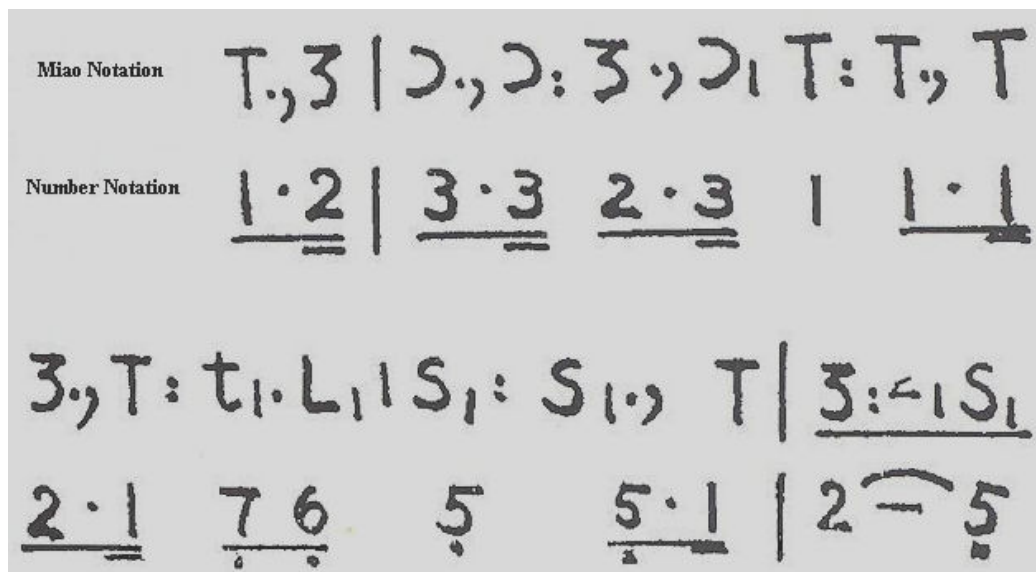 Miao Notation T.,3 | Ɔ.,Ɔ: 3.,Ɔ| T: T., T
Number Notation 1·2 | 3·3 2·3 1 1·1
3.,T: t|.L||S|: S|., T | 3:-|S|
2·1 76 5 5·1 | 2 – 5